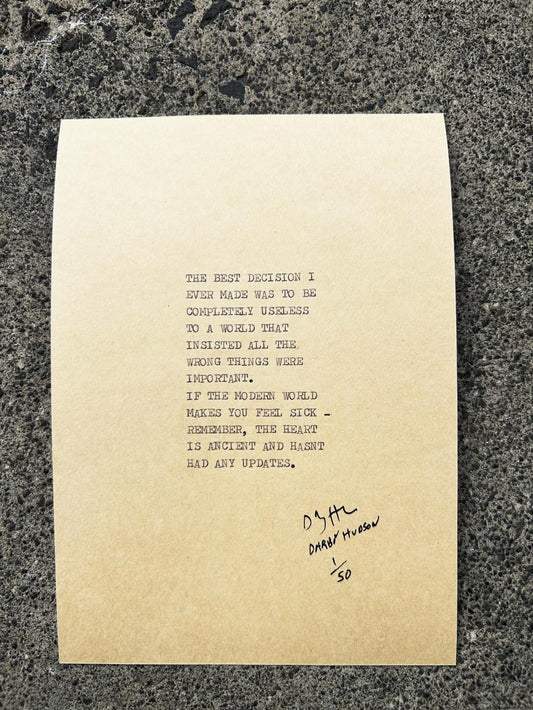 THE BEST DECISION I
EVER MADE WAS TO BE
COMPLETELY USELESS
TO A WORLD THAT
INSISTED ALL THE
WRONG THINGS WERE
IMPORTANT.
IF THE MODERN WORLD
MAKES YOU FEEL SICK -
REMEMBER, THE HEART
IS ANCIENT AND HASNT
HAD ANY UPDATES.
DARBY HUDSON
1/50